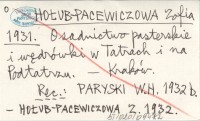 HOŁUB-PACEWICZOWA Zofia
1931. Osadnictwo pasterskie
i wędrówki w Tatrach i na
Podtatrzu. — Kraków.
Rec.: PARYSKI W.H. 1932b.
- HOŁUB-PACEWICZOWA Z. 1932.